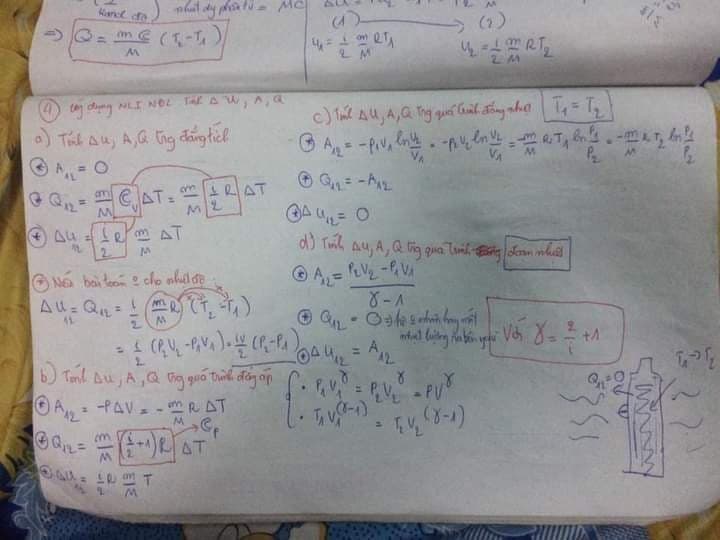 nhất độ phân tử = MC
=> Q = m C / M (T₂ - T₁)
(1) → (2)
U₁ = i/2 m/M RT₁
U₂ = i/2 m/M RT₂
④ ứng dụng NLI NĐL tính ΔU, A, Q
a) Tính ΔU, A, Q trg đẳng tích
⊛ A₁₂ = 0
⊛ Q₁₂ = m/M C_v ΔT = m/M i/2 R ΔT
⊛ ΔU₁₂ = i/2 R m/M ΔT
⊛ Nếu bài toán o cho nhiệt độ
ΔU₁₂ = Q₁₂ = i/2 m/M R (T₂ - T₁)
= i/2 (P₂V₂ - P₁V₁) = iV/2 (P₂ - P₁)
b) Tính ΔU, A, Q trg quá trình đẳng áp
⊛ A₁₂ = -PΔV = - m/M R ΔT
⊛ Q₁₂ = m/M (i/2 + 1) R ΔT
C_p
⊛ ΔU₁₂ = i/2 R m/M T
c) Tính ΔU, A, Q trg quá trình đẳng nhiệt T₁ = T₂
⊛ A₁₂ = -P₁V₁ ln V₂/V₁ = -P₂V₂ ln V₂/V₁ = -m/M R T₁ ln P₁/P₂ = -m/M R T₂ ln P₁/P₂
⊛ Q₁₂ = -A₁₂
⊛ ΔU₁₂ = 0
d) Tính ΔU, A, Q trg quá trình đoạn nhiệt
⊛ A₁₂ = P₂V₂ - P₁V₁ / γ - 1
⊛ Q₁₂ = 0 => hệ o nhận hay mất
nhiệt lượng ra bên ngoài
⊛ ΔU₁₂ = A₁₂
Với γ = 2/i + 1
• P₁V₁^γ = P₂V₂^γ = PV^γ
• T₁V₁^(γ-1) = T₂V₂^(γ-1)
T₁ → T₂
Q₁₂ = 0